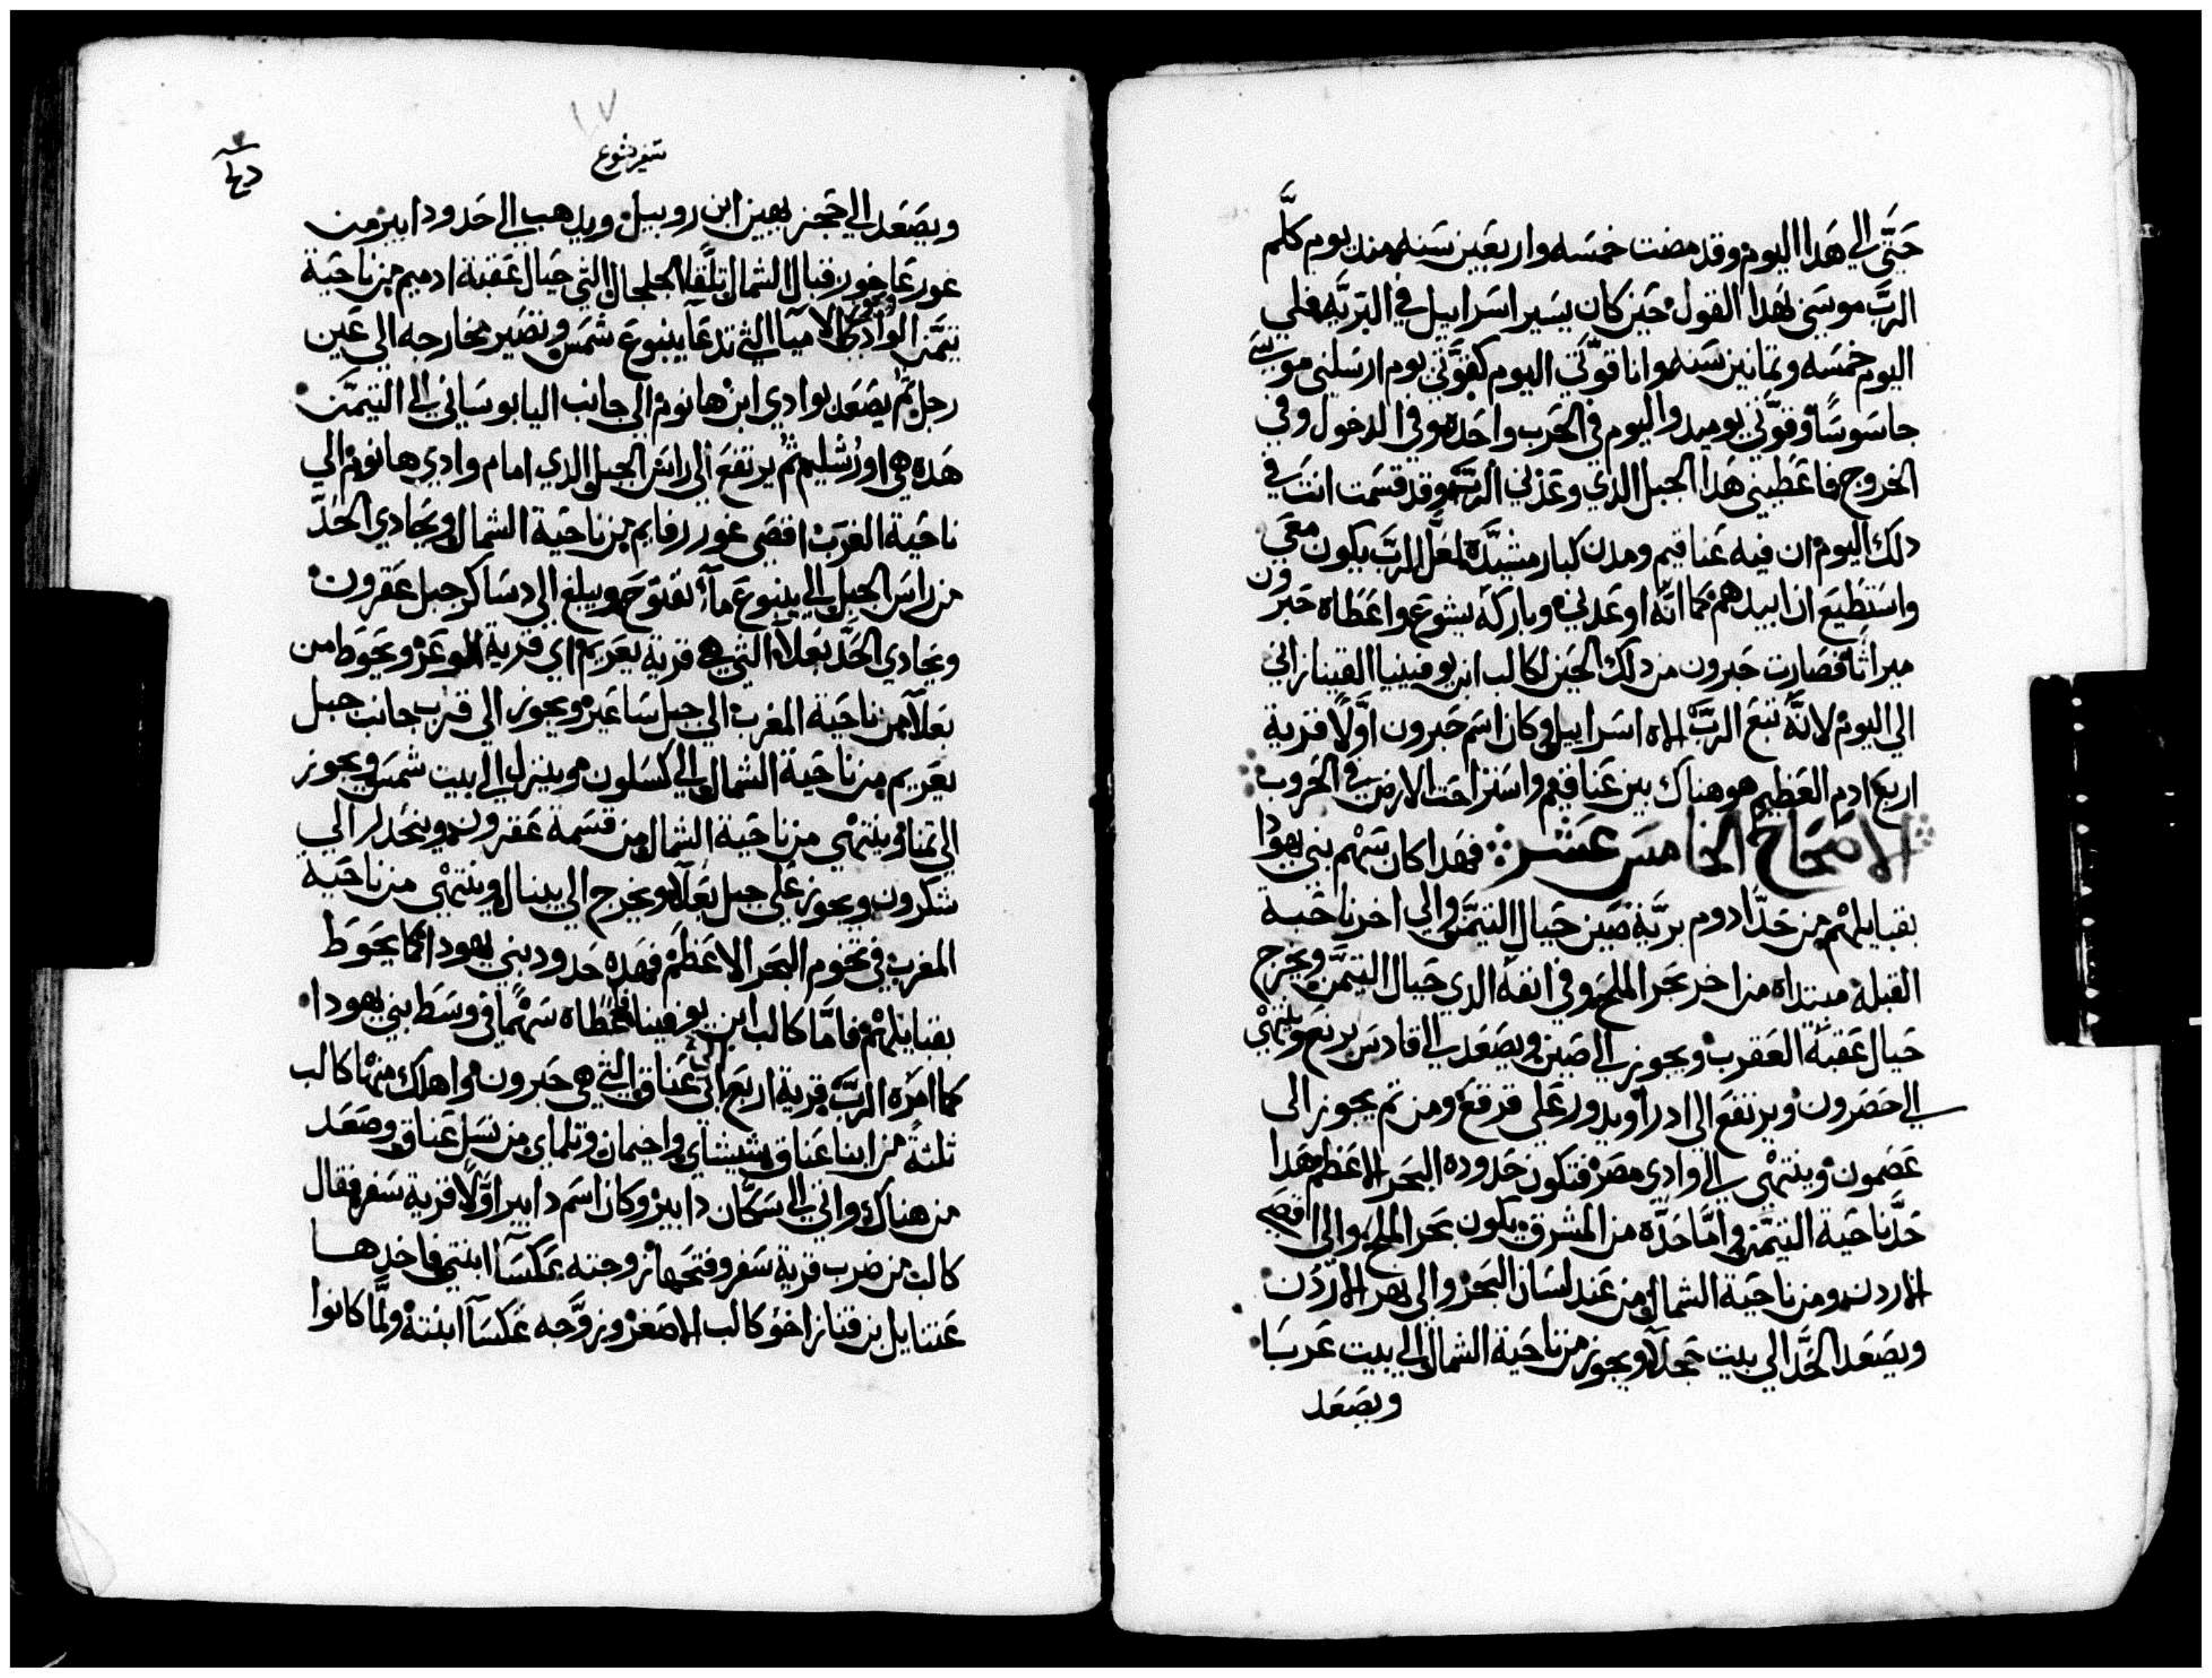 حتَّى الي هدا اليوم وقد مضت خمسه واربعين سنه مند يوم كلَّم
الربّ موسَى بهدا القول حين كان يسير اسراييل في البريّه فلي
اليوم خمسه وتمانين سنه وانا قوّتي اليوم كقوّتي يوم ارسلني موسي
جاسوسًا وقوّتي يوميد واليوم في الحرب واحده وفي الدخول وفي
الخروج فاعطيني هدا الجبل الدي وعدني الربّ وقد قسمت انت في
دلك اليوم ان فيه عناقيم ومدن كبار مشيّدة لعل الربّ يكون معي
واستطيع ان ابيدهم كما انّه اوعدني وباركه يشوع واعطاه حبرون
ميراثًا فصارت حبرون من دلك الحين لكالب ابن يوفينيا القينازاني
الي اليوم لانّه تبع الربّ الاه اسراييل وكان اسم حبرون اوّلًا قرية
اربع ادم العظيم هو هناك بين عناقيم واستراحت الارض في الحروب
الاصحاح الخامس عشر فهدا كان سهم بني يهودا
بقبايلهم من حدّ ادوم بريّة صين حيال التيمّن والي اخر ناحية
القبلة مبتداه من اخر بحر الملح وفي انفه الدي حيال التيمّن ويخرج
حيال عقبة العقرب ويجوز الي صين ويصعد الي قادس بربع وينتهي
الي حصرون ويرتفع الي ادرا ويدور علي قرقع ومن تم يجوز الي
عصمون وينتهي الي وادي مصر فتكون حدوده البحر الاعظم هدا
حدّ ناحية التيمّن وامّا حدّه من المشرق يكون بحر الملح والي اقصي
الاردن ومن ناحية الشمال من عند لسان البحر والي نهر الاردن
ويصعد الحدّ الي بيت حجلا ويجوز من ناحية الشمال الي بيت عربا
ويصعد
سفر يشوع
ويصعد الي حجر بهين ابن روبيل ويدهب الي حدود ابير من
غور عاخور قبال الشمال تلقا الجلجال التي حيال عقبة ادميم من ناحية
تيمّن الوادي ويجوز الامياا التي تدعا ينبوع شمس وتصير مخارجه الي عين
رجل تم يصعد بوادي ابن هانوم الي جانب اليابوساني الي التيمّن
هده هي اورشليم تم يرتفع الي راس الجبل الدي امام وادي هانوم الي
ناحية الغرب اقصي غور رفايم من ناحية الشمال ويحادي الحدّ
من راس الجبل الي ينبوع مآء نفتوح ويبلغ الي دساكر جبل عقرون
ويحادي الحدّ بعلا التي هي قرية يعريم اي قرية الوعر ويحوط من
بعلا من ناحية المغرب الي جبل ساعير ويجوز الي قرب جانب جبل
يعريم من ناحية الشمال الي كسلون وينزل الي بيت شمس ويجوز
الي تمنا وينتهي من ناحية الشمال من قسمة عقرون وينحدر الي
شكرون ويجوز علي جبل بعلا ويخرج الي يبنال وينتهي من ناحية
المغرب في تخوم البحر الاعظم فهده حدود بني يهودا كما يحوط
بقبايلهم فامّا كالب ابن يوفينا فاعطاه سهمًا في وسط بني يهودا
كما امره الربّ قرية اربع ابي عناق التي هي حبرون واهلك منها كالب
تلتة من ابنا عناق شيشاي واحيمان وتلماي من نسل عناق وصعد
من هناك واتي الي سكّان دابير وكان اسم دابير اوّلًا قرية سفر فقال
كالب من ضرب قرية سفر وفتحها زوجته عكسا ابنتي فاخدها
عتنايل بن قناز اخو كالب الاصغر وزوّجه عكسا ابنته ولمّا كانوا